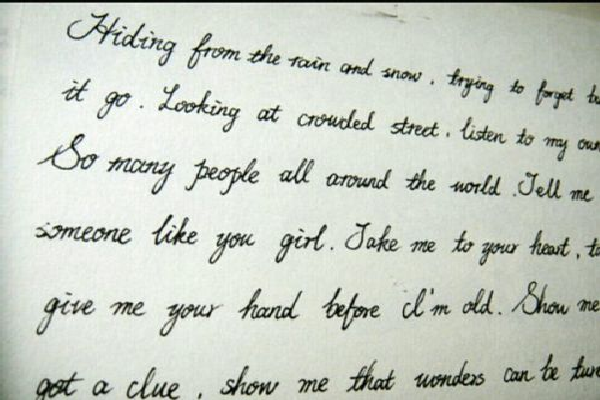 Hiding from the rain and snow, trying to forget
it go. Looking at crowded street, listen to my own
So many people all around the world. Tell me
someone like you girl. Take me to your heart,
give me your hand before I'm old. Show me
got a clue, show me that wonders can be